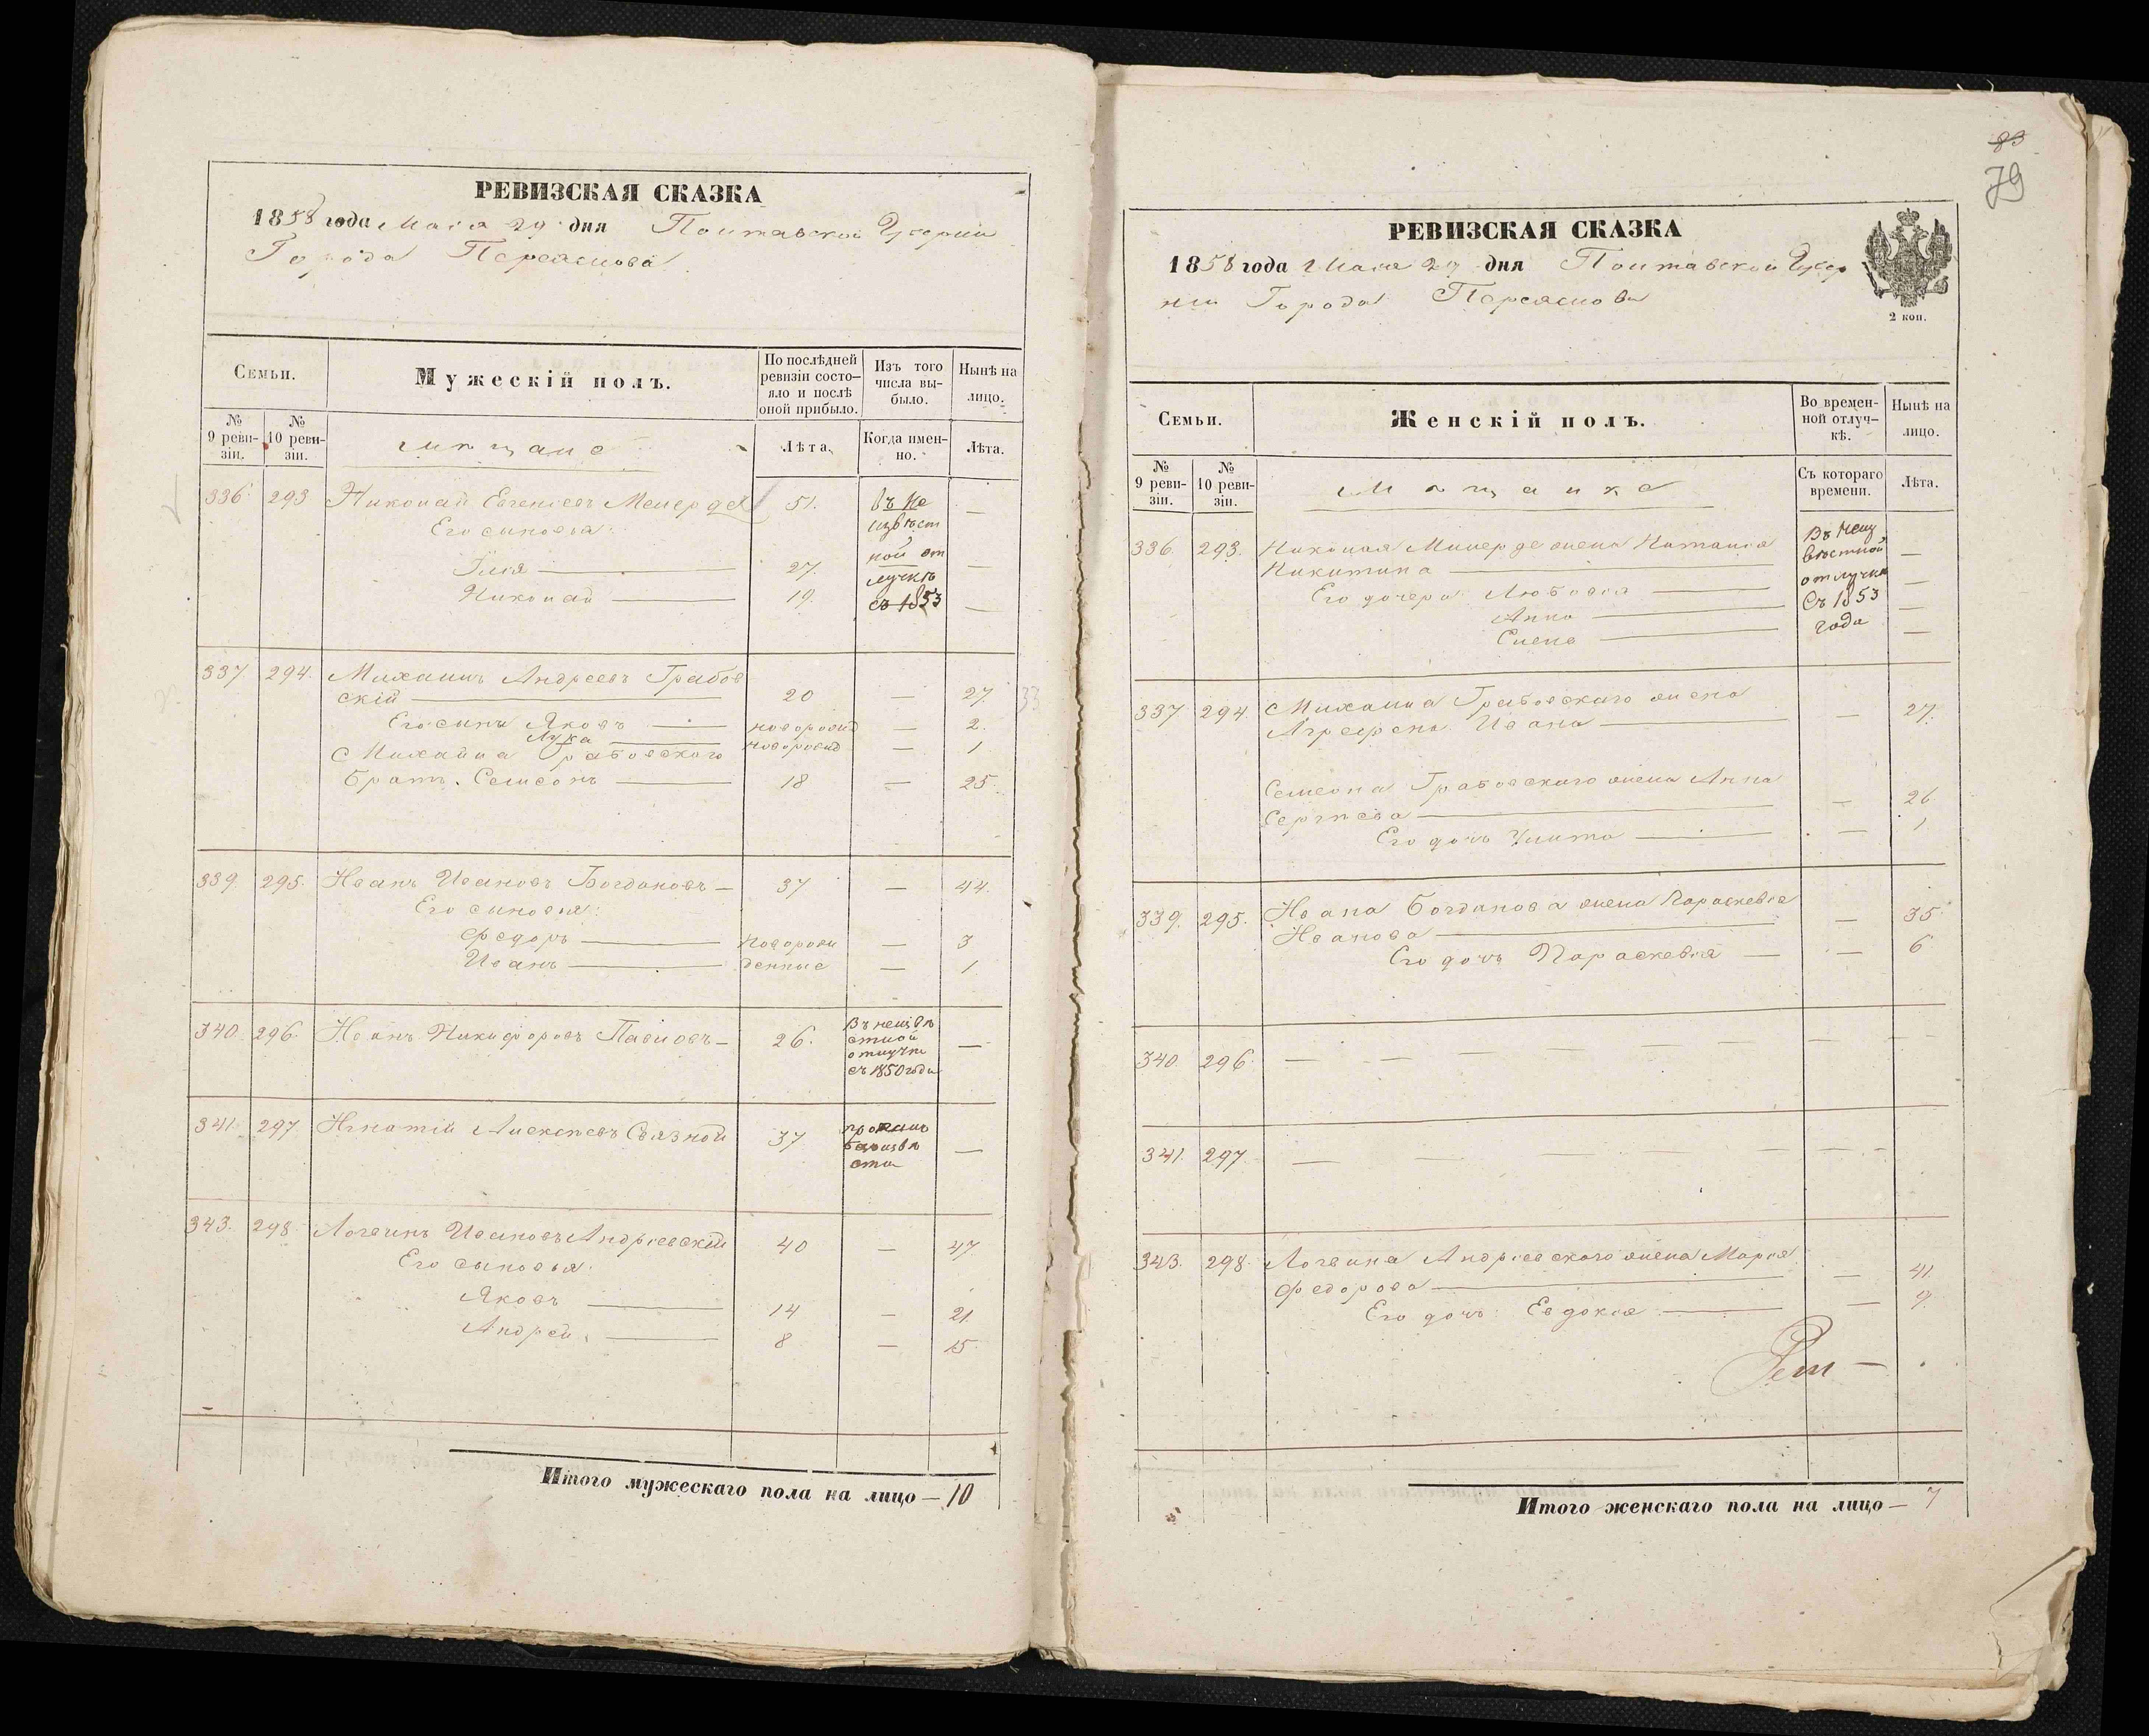 РЕВИЗСКАЯ СКАЗКА
1858 года Маія 29 дня Полтавской Губерніи
Города Переяслова
Семьи.
Мужескій полъ.
По послѣдней ревизіи состо-
яло и послѣ оной прибыло.
Изъ того числа вы-
было.
Нынѣ на лицо.
№ 9 реви-
зіи.
№ 10 реви-
зіи.
мѣщане
Лѣта.
Когда имен-
но.
Лѣта.
336 293 Николай Евгеніевъ 51. въ не —
Его сыновья: извѣст
Илія 27. ной от —
Николай 19. лучкѣ
съ 1853 —
337 294. Михаилъ Андреевъ Грабов
скій 20 — 27.
Его сынъ Яковъ новорожд — 2.
Лука новорожд — 1
Михайла Грабовскаго
братъ. Семеонъ 18 — 25.
339. 295. Иванъ Ивановъ Богдановъ — 37 — 44.
Его сыновья:
Федоръ новорож — 3
Иванъ денные — 1
340. 296. Иванъ Никифоровъ Павловъ — 26. Въ неизвѣ
стной
отлучке —
съ 1850 года
341. 297 Игнатій Алексѣевъ Связной 37 —
343. 298. Логвинъ Ивановъ Андріевскій 40 — 47.
Его сыновья:
Яковъ 14 — 21.
Андрей. 8 — 15.
Итого мужескаго пола на лицо — 10
83
79
РЕВИЗСКАЯ СКАЗКА
1858 года Маія 29 дня Полтавской Губер
ніи Города Переяслова
2 коп.
Семьи.
Женскій полъ.
Во времен-
ной отлуч-
кѣ.
Нынѣ на лицо.
№ 9 реви-
зіи.
№ 10 реви-
зіи.
Мѣщанке
Съ котораго времени.
Лѣта.
336. 293. Николая жена Наталія Въ неиз
Никитина вѣстной —
Его дочери: Любовія отлучке —
Анна съ 1853 —
Елена года —
337 294 Михаила Грабовскаго жена
Агрефена Ивана — 27.
Семеона Грабовскаго жена Анна
Сергѣева — 26.
Его дочь Улита — 1
339. 295. Ивана Богданова жена Параскевія
Иванова — 35
Его дочь Параскевія — 6
340. 296. —
341. 297. —
343. 298. Логвина Андріевскаго жена Марія
Федорова — 41.
Его дочь: Евдокія — 9.
Итого женскаго пола на лицо — 7